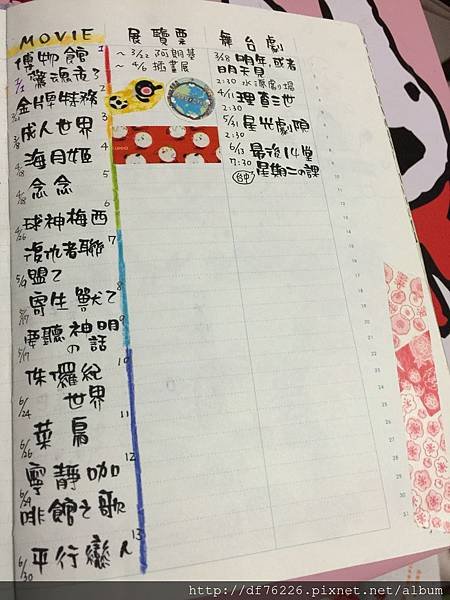 MOVIE
1
博物館
驚魂夜3
2
金牌特務
3
成人世界
4
4/18 海月姬
5
4/18 念念
6
4/26 球神梅西
7
復仇者聯
5/9 盟2
8
5/17 寄生獸2
9
要聽神明
5/17 の話
10
侏儸紀
6/24 世界
11
6/26 菜鳥
12
寧靜咖
6/29 啡館之歌
13
6/30 平行戀人
展覽票
~ 3/22 阿朗基
~ 4/6 插畫展
舞台劇
3/28 明年,或者
明天見
2:30 水源劇場
4/11 理查三世
2:30
5/31 星光劇頭
2:30
6/13 最後14堂
7:30 星期二の課
http://df76226.pixnet.net/album